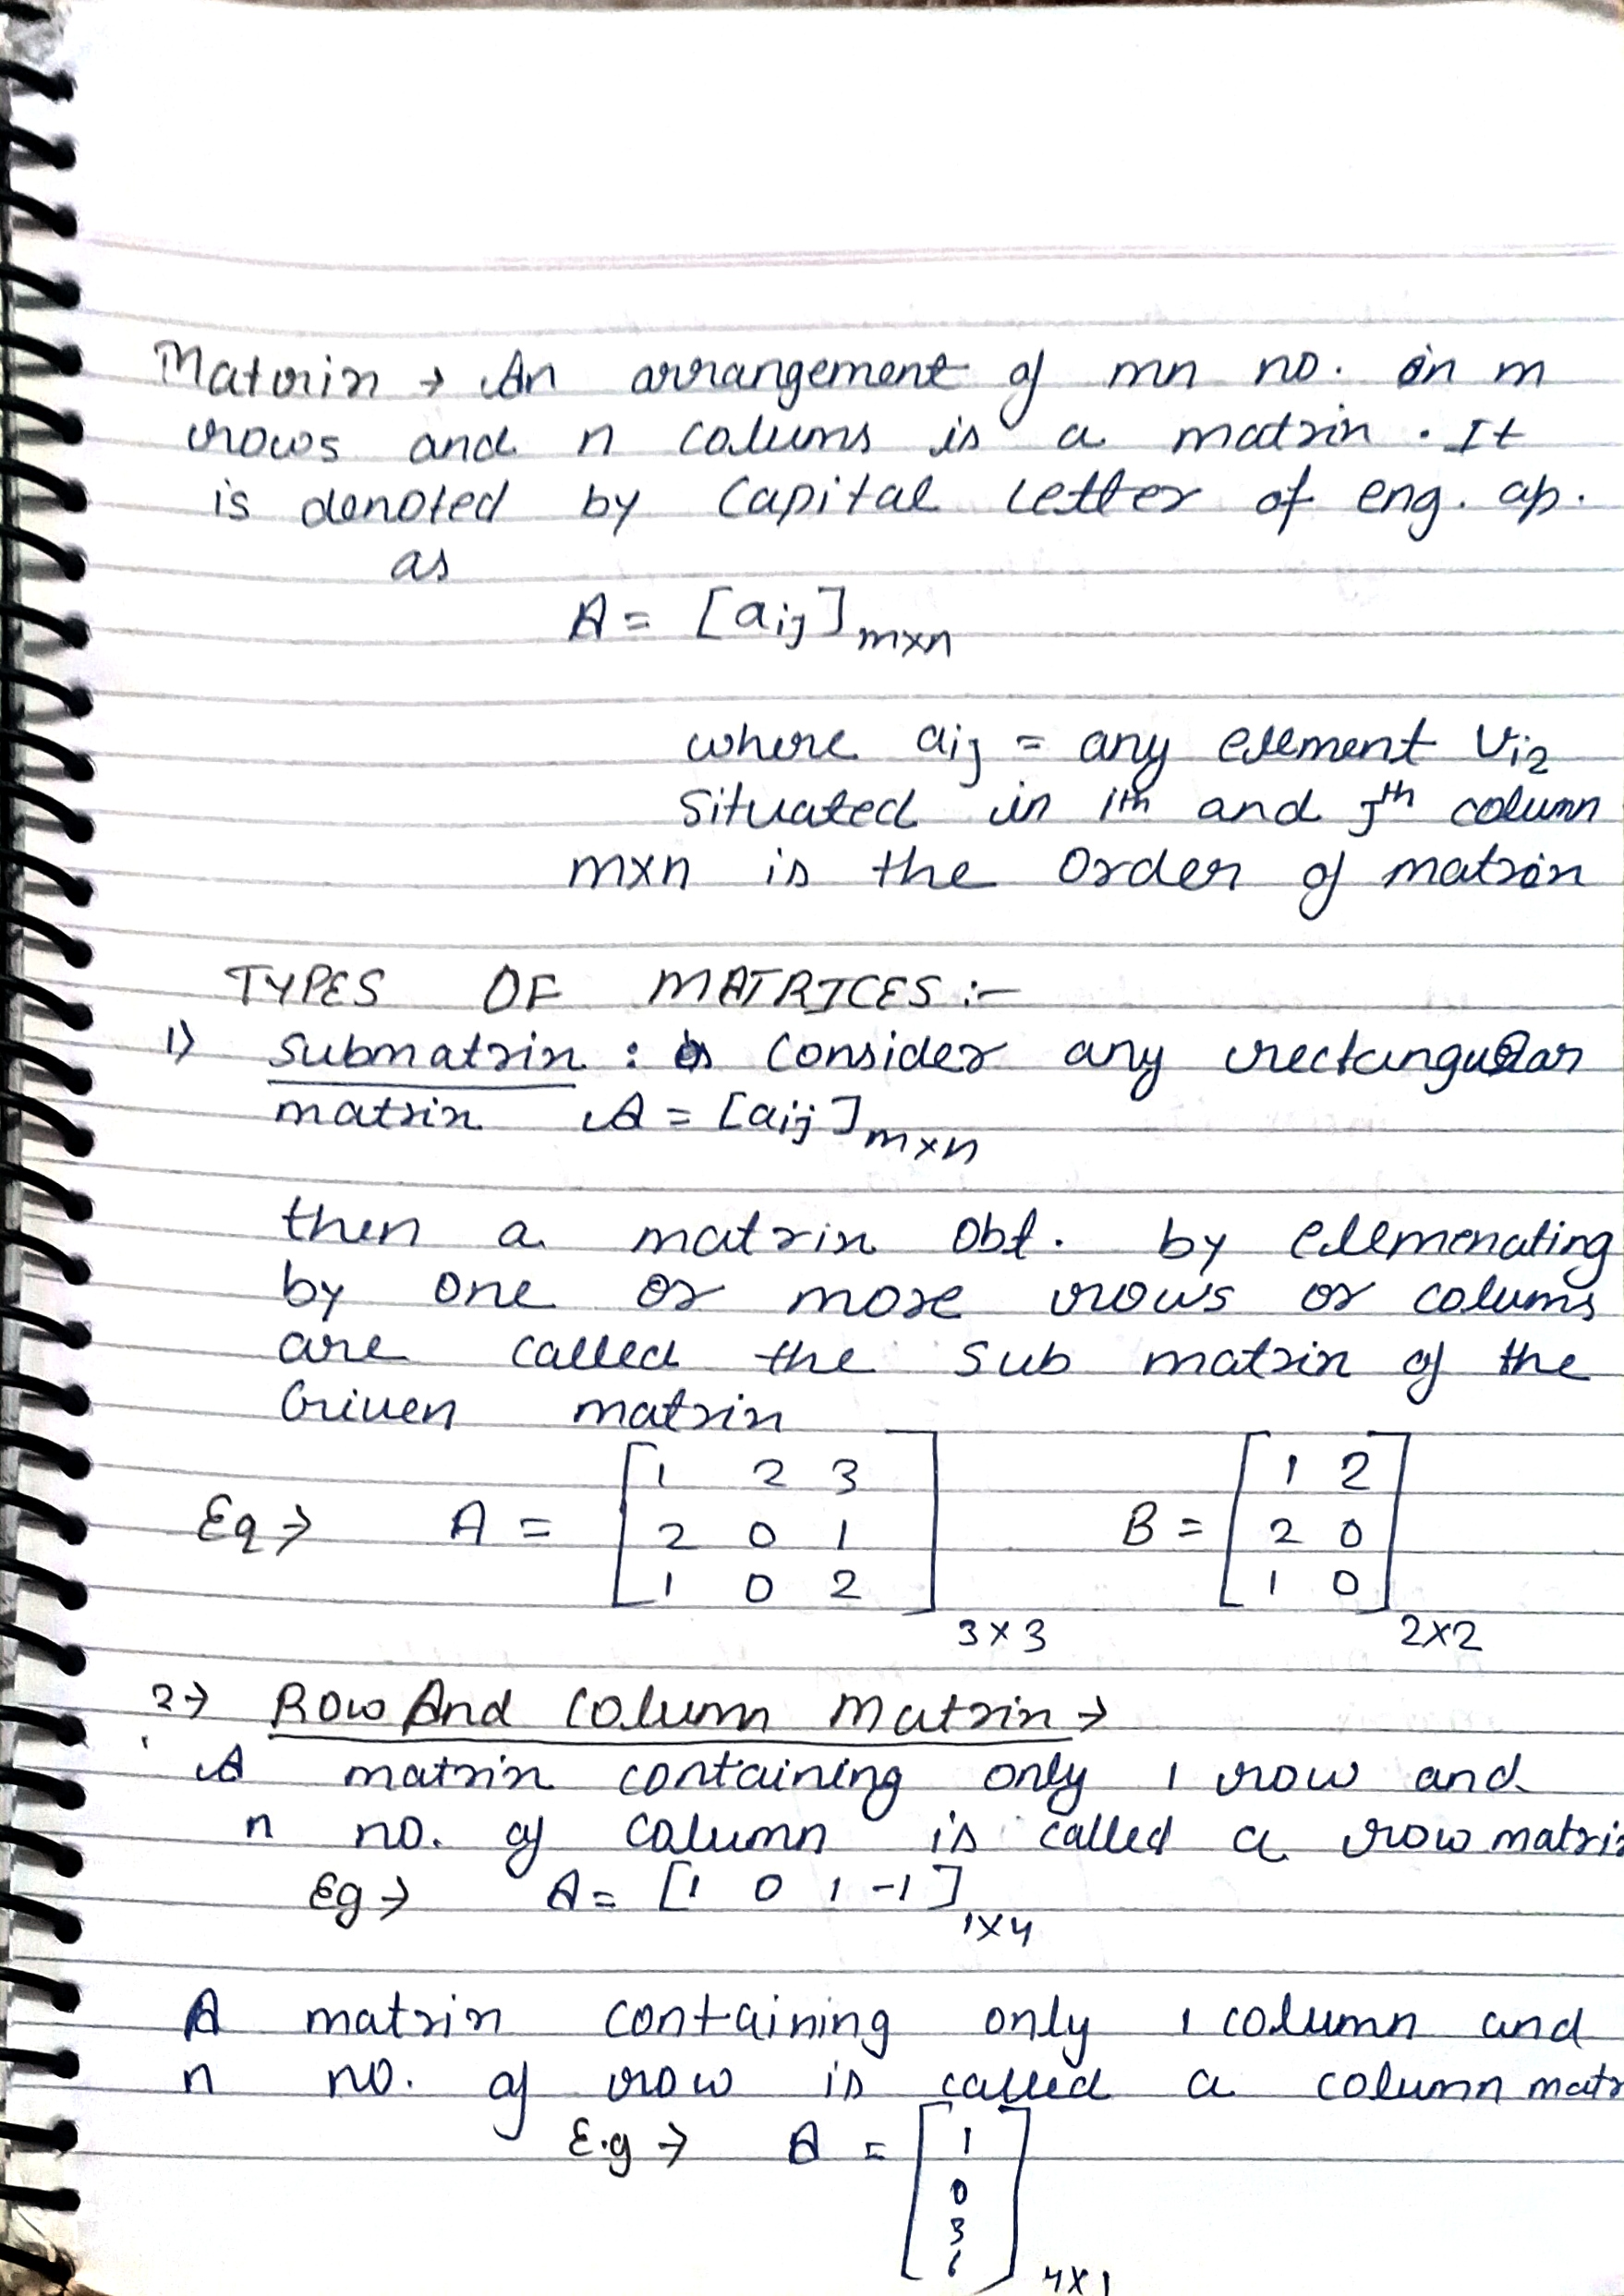 Matrix → An arrangement of mn no. in m
rows and n colums is a matrix. It
is denoted by Capital letter of eng. ap.
as
A = [aij]m×n
where aij = any element Viz
Situated in ith and jth column
m×n is the order of matrix
TYPES OF MATRICES :-
1) Submatrix : Consider any rectangular
matrix A = [aij]m×n
then a matrix obt. by elemenating
by one or more rows or colums
are called the Sub matrix of the
Given matrix
Eg → A = [1 2 3 B = [1 2
2 0 1 2 0
1 0 2]3×3 1 0]2×2
2→ Row And Column Matrix →
A matrix containing only 1 row and
n no. of column is called a row matrix
Eg → A = [1 0 1 -1]1×4
A matrix containing only 1 column and
n no. of row is called a column matr
E.g → A = [1
0
3
]4×1